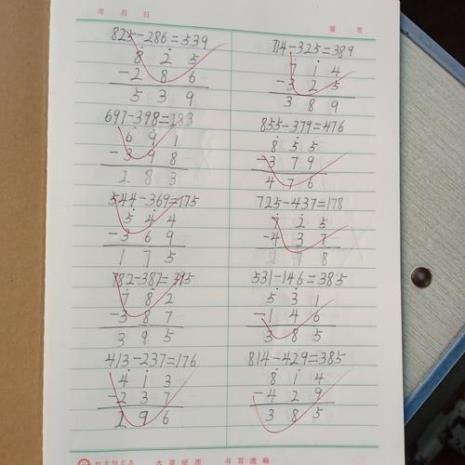 年 月 日
825-286=539
8 2 5
-2 8 6
5 3 9
697-398=283
6 9 1
-3 9 8
2 8 3
544-369=175
5 4 4
-3 6 9
1 7 5
782-387=395
7 8 2
-3 8 7
3 9 5
413-237=176
4 1 3
-2 3 7
2 9 6
714-325=389
7 1 4
-3 2 5
3 8 9
855-379=476
8 5 5
-3 7 9
4 7 6
725-437=178
7 2 5
-4 3 7
1 7 8
531-146=385
5 3 1
-1 4 6
3 8 5
814-429=385
8 1 4
-4 2 9
3 8 5